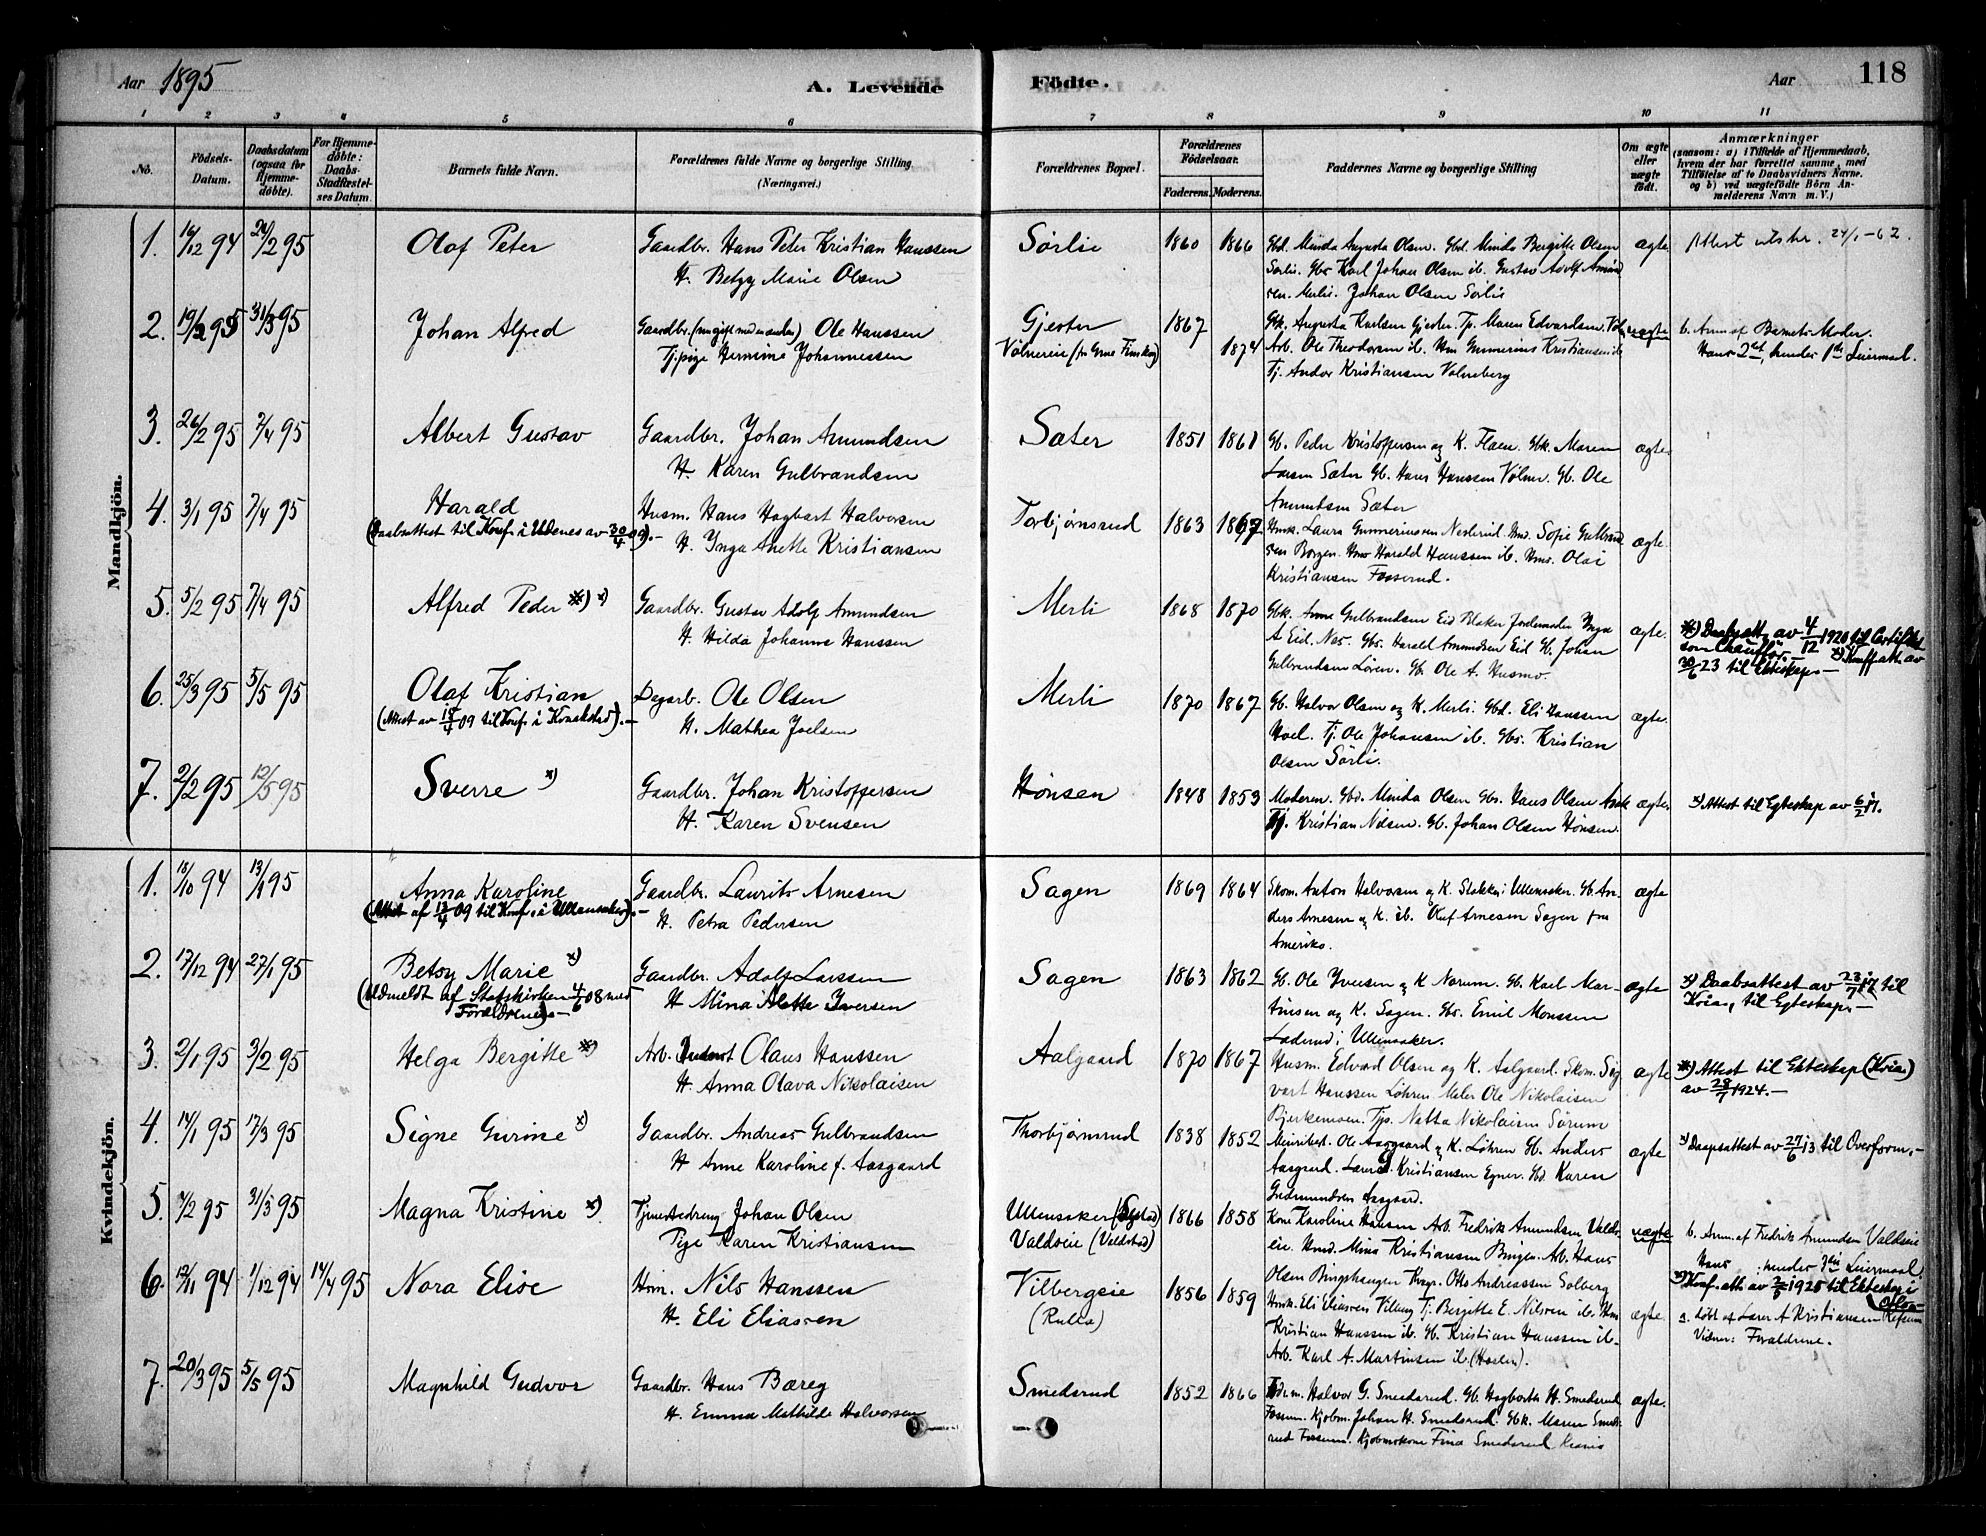 Aar 1895
A. Levende
Födte.
Aar
118
1 2 3 4 5 6 7 8 9 10 11
No.
Födsels-Datum.
Daabsdatum (ogsaa for Hjemme-døbte).
For Hjemme-døbte: Daabs-Stadfæstel-ses Datum.
Barnets fulde Navn.
Forældrenes fulde Navne og borgerlige Stilling (Næringsvei.)
Forældrenes Bopæl.
Forældrenes Födselsaar.
Faderens. Moderens.
Faddernes Navne og borgerlige Stilling
Om ægte eller uægte födt.
Anmærkninger
(saasom: a) i Tilfælde af Hjemmedaab,
hvem der har forrettet samme, med
Tilföielse af to Daabsvidners Navne.
og b) ved uægtefödte Börn An-
melderens Navn m.V.)
Mandkjön.
1. 16/12 94 24/2 95 Olaf Peter
Gaardbr. Hans Peter Kristian Hanssen
H. Betzy Marie Olsen
Sörlie 1860 1866
Gbd. Minda Augusta Olsen. Gbd. Minda Bergitte Olsen
Sörli. Gbs Karl Johan Olsen ib. Gustav Adolf Amund
sen. Merli. Johan Olsen Sörlie
ægte.
Attest utskr. 24/1-62.
2. 19/2 95 31/3 95 Johan Alfred
Gaardbr. (nu gift med en anden) Ole Hanssen
Tj.pige Hermine Johannessen
Gjester 1867
Völnereie 1874
Gbk. Augusta Karlsen Gjester. Tp. Maren Edvardsen
Arb. Ole Theodorsen ib. Hm Gunnerius Kristiansen ib
Tj. Andor Kristiansen Volneberg
uægte
b. Anm. af Barnets Moder.
Hans 2det, hendes 1ste Leiermaal.
3. 26/2 95 7/4 95 Albert Gustav
Gaardbr. Johan Amundsen
H. Karen Gulbrandsen
Sæter 1851 1861
Gb. Peder Kristoffersen og K. Flaen. Gbk. Maren
Larsen Sæter Gb. Hans Hanssen Völner. Gb. Ole
Amundsen Sæter
ægte.
4. 3/1 95 7/4 95 Harald
(Daabsattest til Konf. i Udenes av 30/4 09).-
Husm. Hans Hagbart Halvorsen
H. Inga Anette Kristiansen
Torbjörnsrud 1863 1867
Hmk. Laura Gunneriussen Nesterud. Hmd. Sofie Gulbrand
sen Borgen. Hms Harald Hanssen ib. Hms. Olai
Kristiansen Fosserud.
ægte.
5. 5/2 95 7/4 95 Alfred Peder *) x)
Gaardbr. Gustav Adolf Amundsen
H. Hilda Johanne Hanssen
Merli 1868 1870
Gbk. Anne Gulbrandsen Eid Blaker Jordemoder Inga
A Eid. Næs. Gbs. Harald Amundsen Eid Gb. Johan
Gulbrandsen Lören. Gb. Ole A. Husmo.
ægte.
*) Daabsatt. av 4/12 1920 til Certifikat
som Chauffør. - x) Konf.att. av
30/6 23 til Ekteskap.-
6. 25/3 95 5/5 95 Olaf Kristian
(Attest av 18/4 09 til Konf. i Kraakstad).-
Dagarb. Ole Olsen
H. Mathea Joelsen
Merli 1870 1867
Gb. Halvor Olsen og K. Merli. Gbd. Eli Hanssen
Hoel. Tj. Ole Johansen ib. Gbs. Kristian
Olsen Sörli.
ægte.
7. 2/2 95 12/5 95 Sverre x)
Gaardbr. Johan Kristoffersen
H. Karen Svensen
Hönsen 1848 1853
Moderen. Gbd. Minda Olsen Gbs. Hans Olsen Ask
Tj. Kristian Næsen. Gb. Johan Olsen Hönsen.
ægte.
x) Attest til Egteskap av 6/2 17.
Kvindekjön.
1. 18/10 94 13/1 95 Anna Karoline
(Attest af 13/4 09 til Konf. i Ullensaker).-
Gaardbr. Laurits Arnesen
H. Petra Pedersen
Sagen 1869 1864
Skom. Anton Halvorsen og K. Stokker i Ullensaker. Gb. An-
ders Arnesen og K. ib. Olaf Arnesen Sagen fra
Amerika.
ægte
2. 17/12 94 27/1 95 Betsy Marie x)
(Udmeldt af Statskirken 4/6 08 med
Forældrene).-
Gaardbr. Adolf Larssen
H Mina Alette Iversen
Sagen 1863 1862
Gb. Ole Iversen og K Narum. Gb. Karl Mar-
tinsen og K. Sagen. Gbs. Emil Monssen
Laderud i Ullensaker.
ægte
x) Daabsattest av 23/7 17 til
Kria, til Egteskap.-
3. 2/1 95 3/2 95 Helga Bergitte *)
Arb. Olaus Hanssen
H. Anna Olava Nikolaisen
Aalgaard 1870 1867
Husm. Edvard Olsen og K. Aalgaard. Skom. Sig
vart Hanssen Löhren. Maler Ole Nikolaisen
Bjerkemoen. Typ. Natta Nikolaisen Sörum
ægte
*) Attest til Ekteskap (Kria)
av 28/7 1924.-
4. 14/1 95 17/3 95 Signe Gurine x)
Gaardbr. Andreas Gulbrandsen
H Anne Karoline f. Aasgaard
Thorbjörnsrud 1838 1852
Ole Aasgaard og K. Löhren Gb. Anders
Aasgaard. Laura Kristiansen Egner. Gbd. Karen
Gudmundsen Aasgaard.
ægte
x) Daapsattest av 27/6 13 til Overform.-
5. 7/2 95 31/3 95 Magna Kristine *).
Tjenestedreng Johan Olsen
Pige Karen Kristiansen
Ullensaker 1866 1858
Valdseie (Valdstad)
Kone Karoline Hansen Arb. Fredrik Amundsen Valds-
eie. Hmd. Mina Kristiansen Bingen. Arb. Hans
Olsen Bingshaugen Otto Andreassen Solberg
uægte
b. Anm. af Fredrik Amundsen Valdseie
Hans : hendes 3die Leiermaal.
*) Konf. att. av 2/5 1925 til Ekteskap i
Oslo-
6. 12/11 94 1/12 94 14/4 95 Nora Elise
Hm. Nils Hanssen
H. Eli Eliassen
Vilbergseie 1856 1859
(Rulla)
Hmk. Eli Eliassen Vilberg Tj. Bergitte E. Nilsen ib. Hm
Kristian Hanssen ib. Gb. Kristian Hanssen ib.
Arb. Karl A. Martinsen ib (Haslen).
ægte.
a. Döbt af Lærer A Kristiansen Refsum
Vidner: Forældrene.
7. 20/3 95 5/5 95 Magnhild Gudvor
Gaardbr. Hans Bæreg
H. Emma Mathilde Halvorsen
Smedsrud 1852 1866
Halvor G. Smedsrud. Gb. Hagbarth H. Smedsrud
Fossum. Kjøbm. Johan H. Smedsrud. Gbk. Maren Smeds
rud Fossum. Kjøbmskone Fina Smedsrud Krania
ægte.